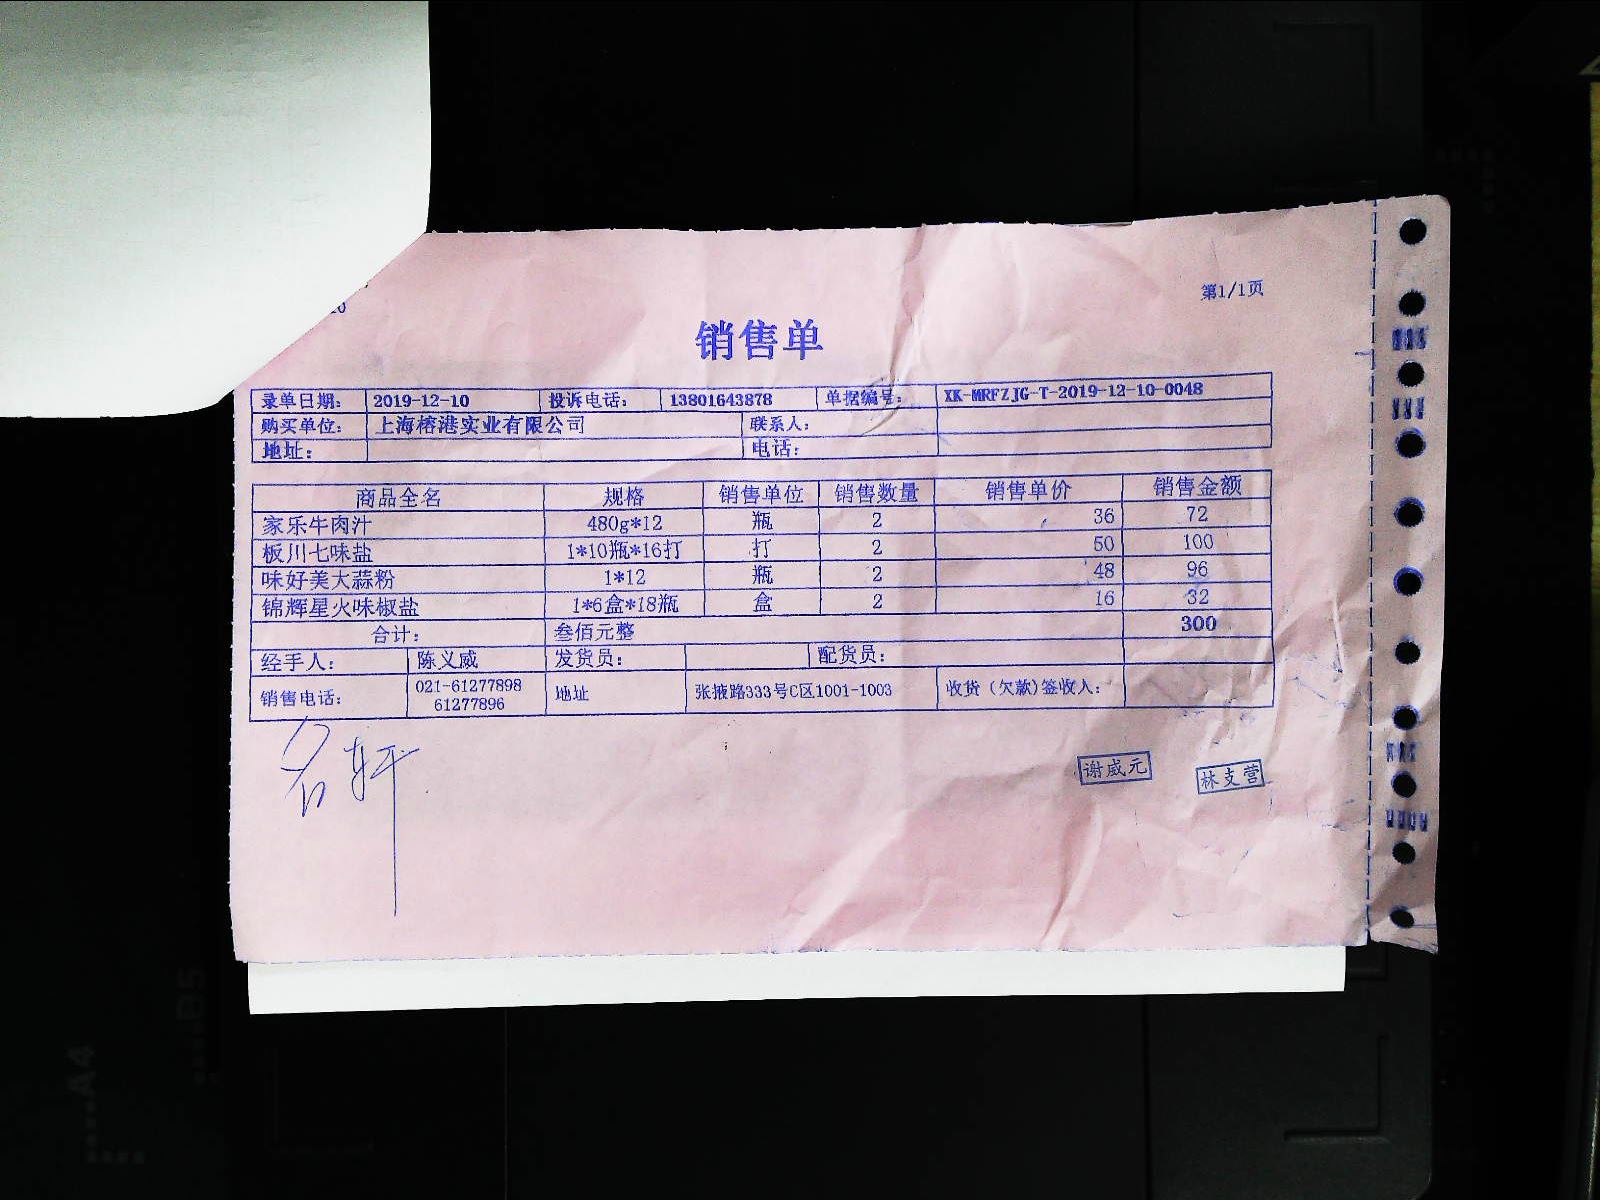 第1/1页
销售单
录单日期: 2019-12-10 投诉电话: 13801643878 单据编号: XK-MRFZJG-T-2019-12-10-0048
购买单位: 上海榕港实业有限公司 联系人:
地址: 电话:
商品全名 规格 销售单位 销售数量 销售单价 销售金额
家乐牛肉汁 480g*12 瓶 2 36 72
板川七味盐 1*10瓶*16打 打 2 50 100
味好美大蒜粉 1*12 瓶 2 48 96
锦辉星火味椒盐 1*6盒*18瓶 盒 2 16 32
合计: 叁佰元整 300
经手人: 陈义威 发货员: 配货员:
销售电话: 021-61277898 61277896 地址 张掖路333号C区1001-1003 收货(欠款)签收人:
名轩
谢威元
林支营